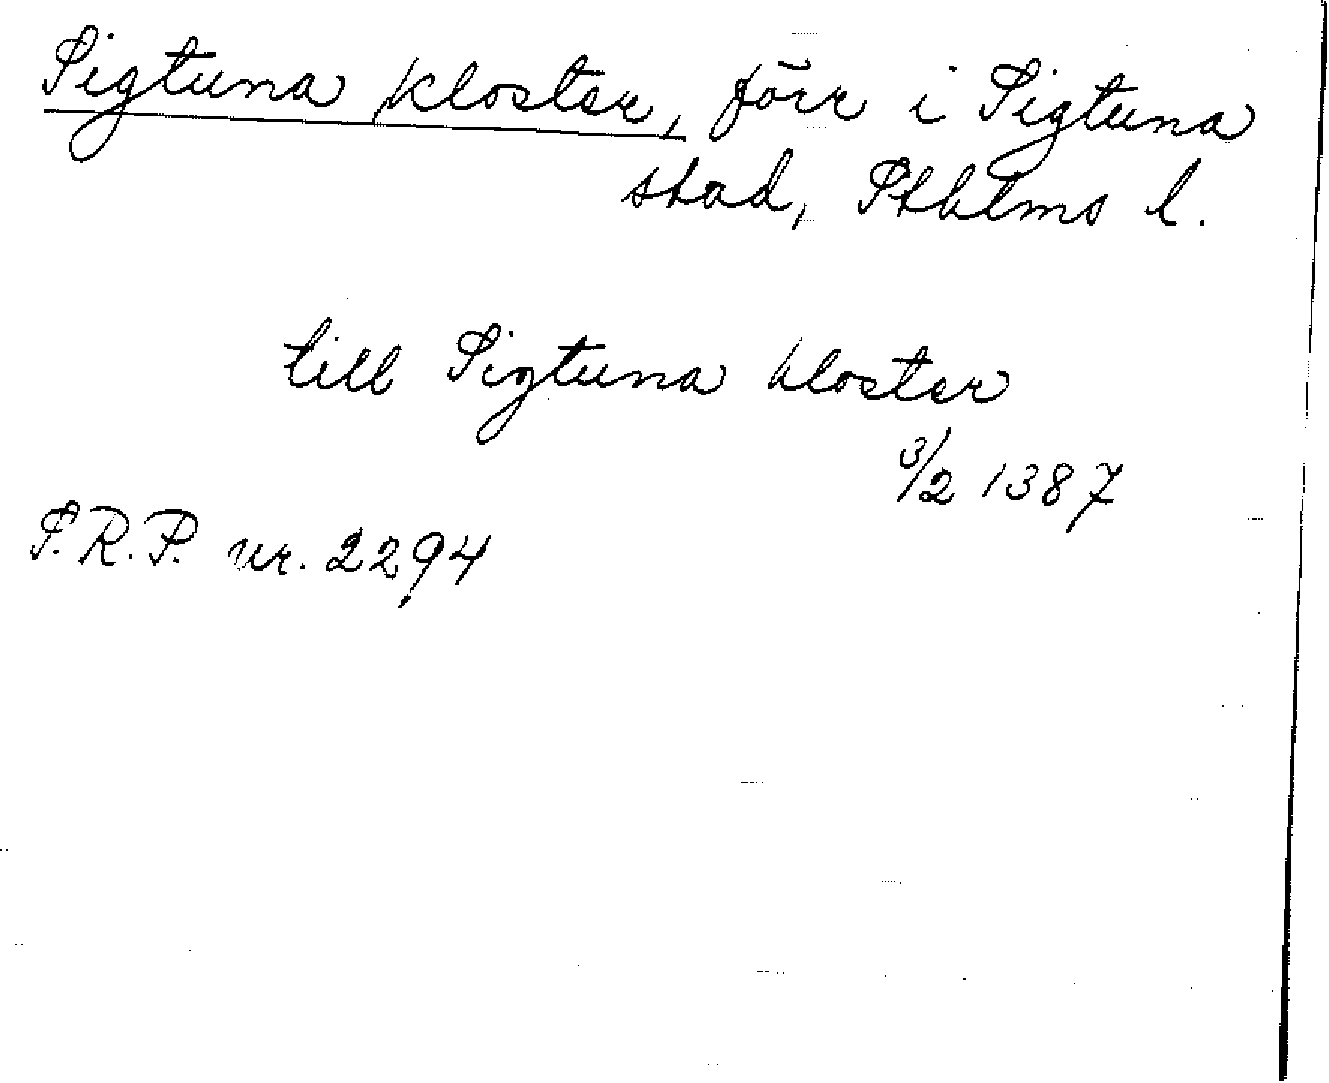 Sigtuna kloster, förr i Sigtuna
stad, Sthlms l.
till Sigtuna kloster
3/2 1387
S.R.P. nr. 2294